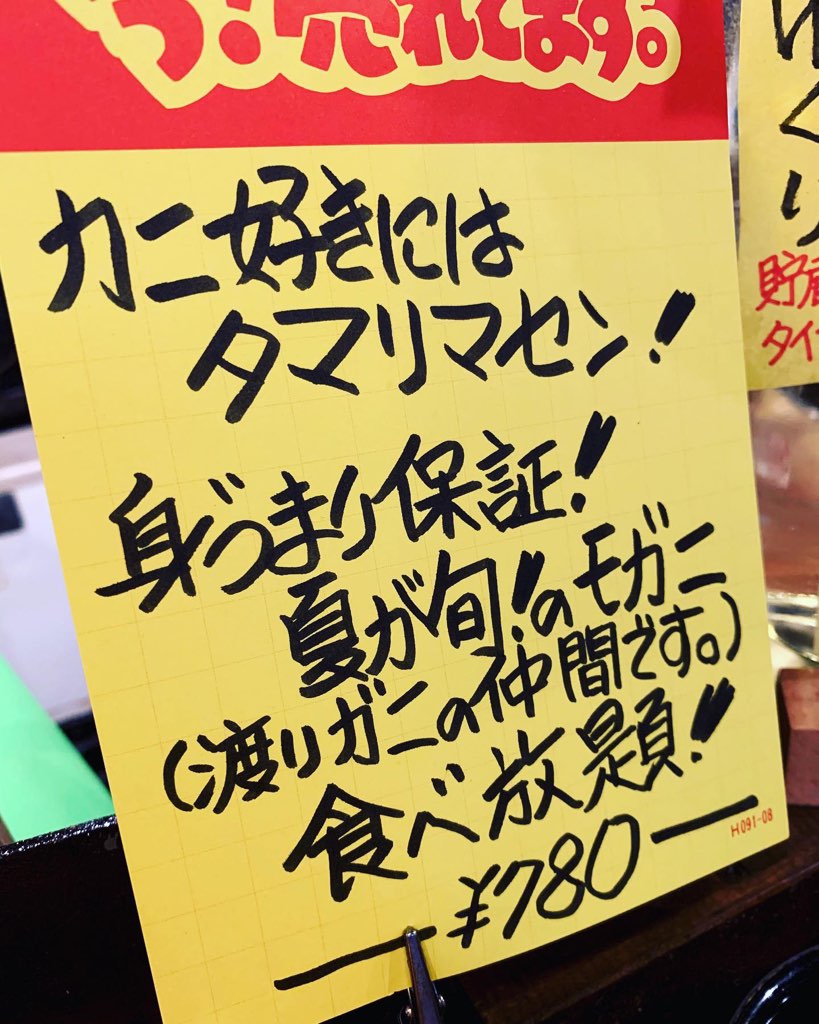 つ!売れてます。
カニ好きには
タマリマセン!
身づまり保証!!
夏が旬!!のモガニ
(渡りガニの仲間です。)
食べ放題!!
¥780
H091-08
ゆくり
貯蔵
タイ